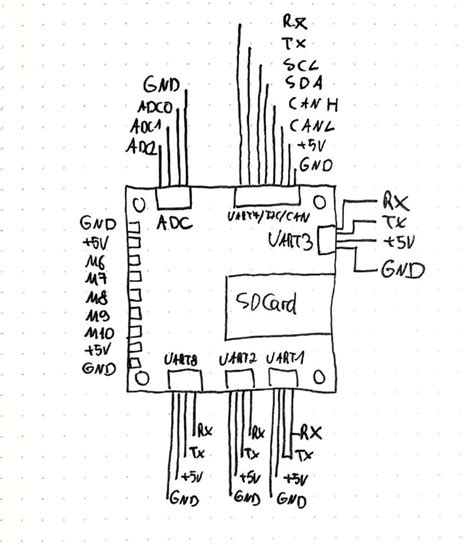 RX
TX
SCL
SDA
CAN H
CANL
+5V
GND
GND
ADC0
ADC1
ADC2
ADC
UART4/I2C/CAN
UART3
RX
TX
+5V
GND
GND
+5V
M6
M7
M8
M9
M10
+5V
GND
SDCard
UART8
UART2
UART1
RX
TX
+5V
GND
RX
TX
+5V
GND
RX
TX
+5V
GND